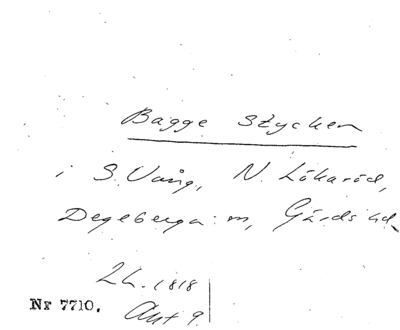 Bagge Stycken
i S. Vång, N. Lökaröd,
Degeberga: m, Gärds hd.
2 h. 1818
Nr 7710. Akt 9.